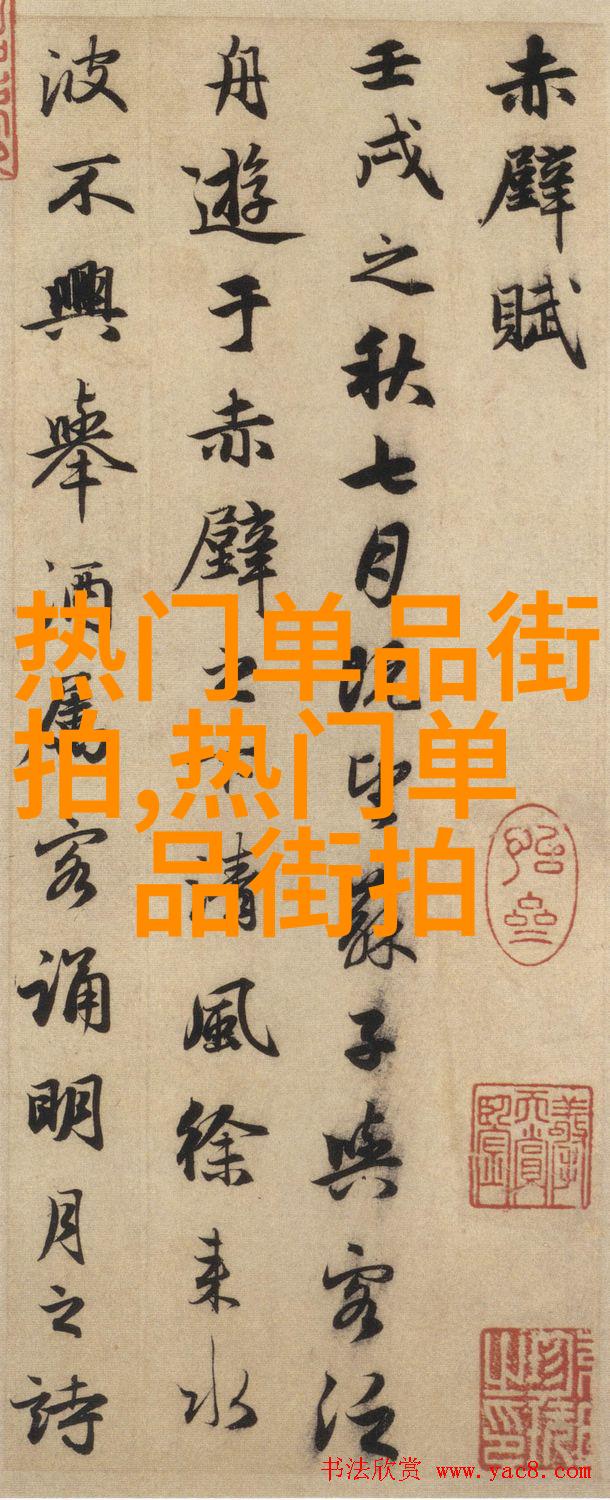 赤壁賦
壬戌之秋七月既望蘇子與客泛
舟遊于赤壁之下清風徐来水
波不興舉酒属客誦明月之詩
热门单品街
拍,热门单
品街拍
书法欣赏 www.yac8.com